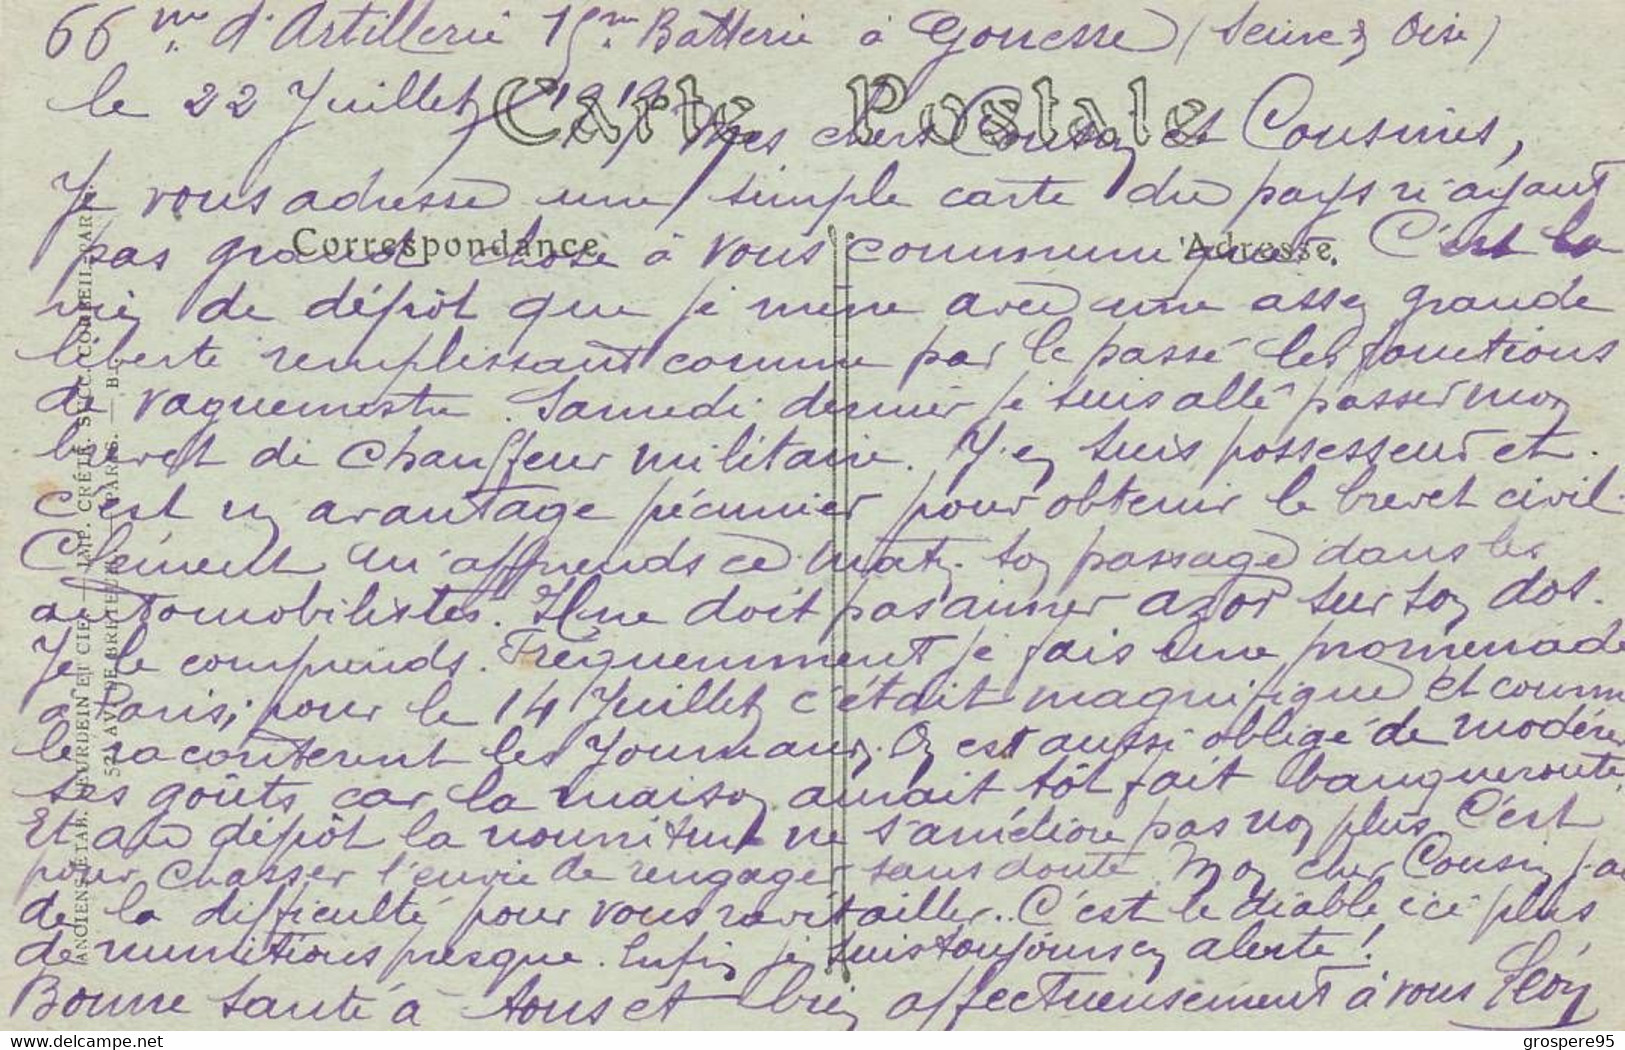 66me d'Artillerie 15me Batterie à Gonesse (Seine & Oise)
le 22 Juillet 1919 Mes chers Cousin et Cousines,
Carte Postale
Je vous adresse une simple carte du pays n'ayant
Correspondance
Adresse
pas grand chose à vous communiquer. C'est la
vie de dépôt que je mène avec une assez grande
liberté remplissant comme par le passé les fonctions
de vaguemestre. Samedi dernier je suis allé passer mon
brevet de chauffeur militaire. J'en suis possesseur et
c'est un avantage pécunier pour obtenir le brevet civil.
Clément m'apprends ce matin son passage dans les
automobilistes. Il ne doit pas aimer azor sur son dos.
Je le comprends. Fréquemment je fais une promenade
à Paris; pour le 14 Juillet c'était magnifique et comme
le racontèrent les Journaux. On est aussi obligé de modérer
ses goûts car la maison aurait tôt fait banqueroute.
Et au dépôt la nourriture ne s'améliore pas non plus. C'est
pour chasser l'envie de rengager sans doute. Mon cher Cousin j'ai
de la difficulté pour vous ravitailler.. C'est le diable ici plus
de munitions presque. Enfin je suis toujours en alerte!
Bonne santé à tous et bien affectueusement à vous Léon
ANCIENS ETAB. NEURDEIN ET CIE. — IMP. CRÉTÉ. SUCC. CORBEIL-PARIS.
52, AV. DE BRETEUIL, PARIS. — B.L.
www.delcampe.net
grospere95